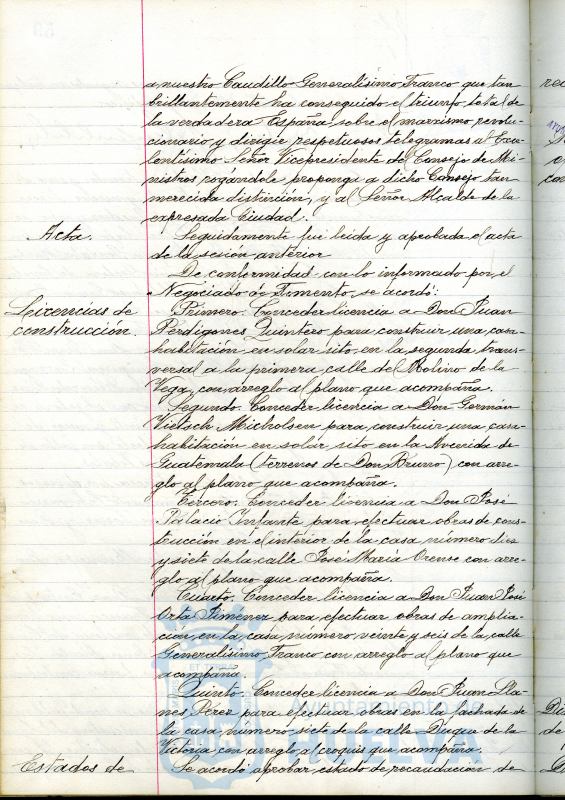 a nuestro Caudillo Generalísimo Franco que tan
brillantemente ha conseguido el triunfo total de
la verdadera España sobre el marxismo revolu-
cionario y dirigir respetuosos telegramas al Exce-
lentísimo Señor Vicepresidente del Consejo de Mi-
nistros rogándole proponga a dicho Consejo tan
merecida distinción, y al Señor Alcalde de la
expresada Ciudad.
Acta.
Seguidamente fué leida y aprobada el acta
de la sesión anterior
De conformidad con lo informado por el
Negociado de Fomento, se acordó:
Licencias de
construcción.
Primero: Conceder licencia a Don Juan
Perdigones Quintero para construir una casa
habitación en solar sito en la segunda trans-
versal a la primera calle de Molino de la
Vega, con arreglo al plano que acompaña.
Segundo: Conceder licencia a Don Germán
Vietsch Micholsen para construir una casa
habitación en solar sito en la Avenida de
Guatemala (terrenos de Don Bruno) con arre-
glo al plano que acompaña.
Tercero: Conceder licencia a Don José
Palacio Infante para efectuar obras de cons-
trucción en el interior de la casa número diez
y siete de la calle José María Orense con arre-
glo al plano que acompaña.
Cuarto: Conceder licencia a Don Juan José
Orta Jiménez para efectuar obras de amplia-
ción en la casa número veinte y seis de la calle
Generalísimo Franco con arreglo al plano que
acompaña.
Quinto: Conceder licencia a Don Juan Lla-
nes Pérez para efectuar obras en la fachada de
la casa número siete de la calle Duque de la
Victoria con arreglo al croquis que acompaña.
Estados de
Se acordó aprobar estado de recaudación de
Ayuntamiento de
HUELVA